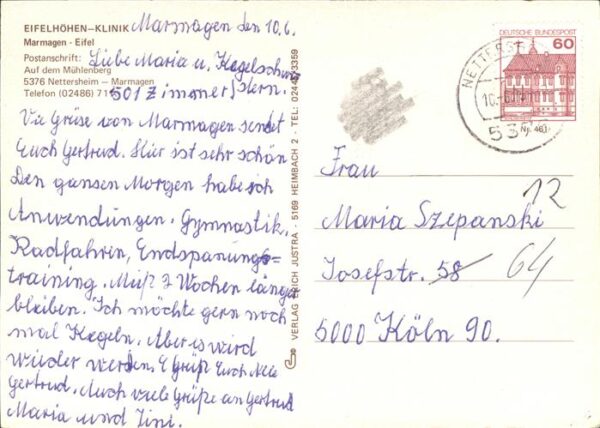 EIFELHÖHEN-KLINIK
Marmagen - Eifel
Postanschrift:
Auf dem Mühlenberg
5376 Nettersheim — Marmagen
Telefon (02486) 71
Marmagen den 10.6.
Liebe Maria u. Kegelschwestern.
501 Zimmer
Vile Grüse von Marmagen sendet
Euch Gertrud. Hier ist sehr schön
Den gansen Morgen habe ich
Anwendungen. Gymnastik,
Radfahren, Endspanungs=
training. Muß 2 Wochen länger
bleiben. Ich möchte gern noch
mal Kegeln. Aber es wird
wieder werden. Grüß Euch
Gertrud. Auch viele Grüße an Gertrud
Maria und Tini.
VERLAG ERICH JUSTRA - 5169 HEIMBACH 2 - TEL: 02446/3359
DEUTSCHE BUNDESPOST
60
NETTERSH
10.-6.
537
Frau
Maria Szepanski
Josefstr. 58
12
64
5000 Köln 90.